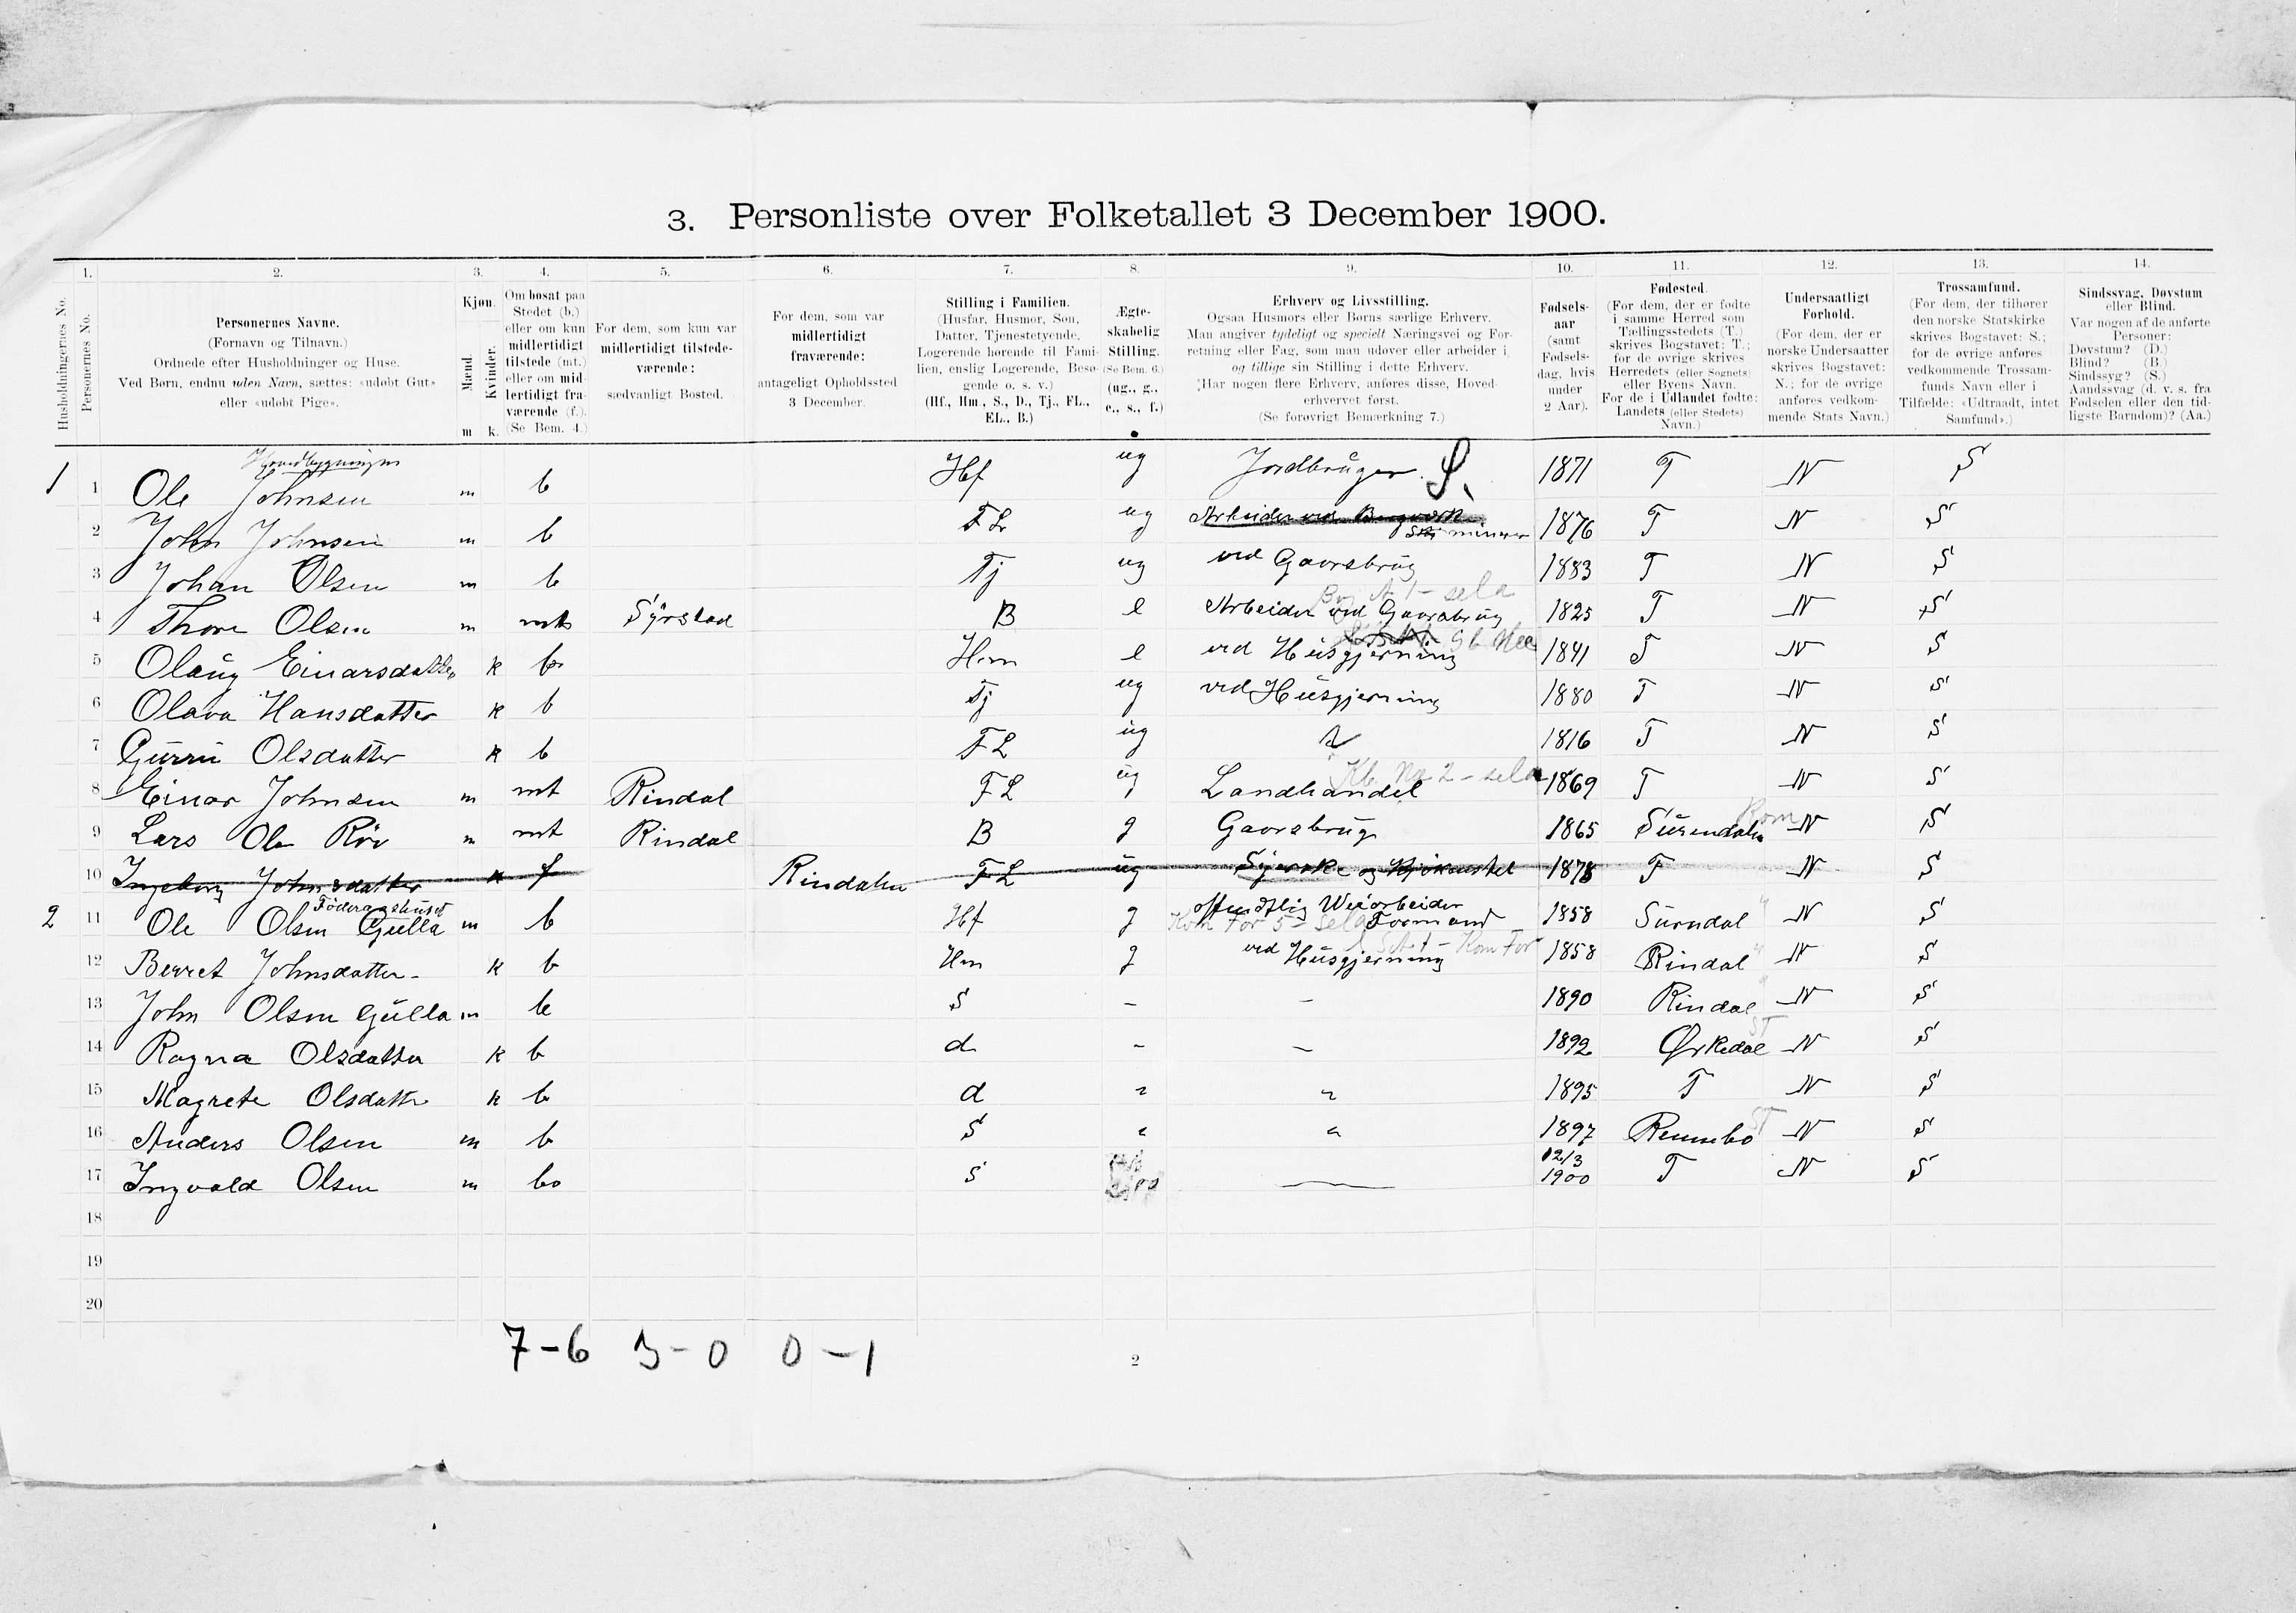 3. Personliste over Folketallet 3 December 1900.
1. 2. 3. 4. 5. 6. 7. 8. 9. 10. 11. 12. 13. 14.
Husholdningernes No.
Personernes No.
Personernes Navne.
(Fornavn og Tilnavn.)
Ordnede efter Husholdninger og Huse.
Ved Børn, endnu uden Navn, sættes: «udøbt Gut»
eller «udøbt Pige».
Kjøn.
Mænd.
Kvinder.
m k.
Om bosat paa
Stedet (b.)
eller om kun
midlertidigt
tilstede (mt.)
eller om mid-
lertidigt fra-
værende (f.).
(Se Bem. 4.)
For dem, som kun var
midlertidigt tilstede-
værende:
sædvanligt Bosted.
For dem, som var
midlertidigt
fraværende:
antageligt Opholdssted
3 December.
Stilling i Familien.
(Husfar, Husmor, Søn,
Datter, Tjenestetyende,
Logerende hørende til Fami-
lien, enslig Logerende, Besø-
gende o. s. v.)
(Hf., Hm., S., D., Tj., FL.,
EL., B.)
Ægte-
skabelig
Stilling.
(Se Bem. 6.)
(ug., g.,
e., s., f.)
Erhverv og Livsstilling.
Ogsaa Husmors eller Børns særlige Erhverv.
Man angiver tydeligt og specielt Næringsvei og For-
retning eller Fag, som man udøver eller arbeider i,
og tillige sin Stilling i dette Erhverv.
(Har nogen flere Erhverv, anføres disse, Hoved-
erhvervet først.
(Se forøvrigt Bemærkning 7.)
Fødsels-
aar
(samt
Fødsels-
dag, hvis
under
2 Aar).
Fødested.
(For dem, der er fødte
i samme Herred som
Tællingsstedets (T.)
skrives Bogstavet: T.;
for de øvrige skrives
Herredets (eller Sognets)
eller Byens Navn.
For de i Udlandet fødte:
Landets (eller Stedets)
Navn.)
Undersaatligt
Forhold.
(For dem, der er
norske Undersaatter
skrives Bogstavet:
N.; for de øvrige
anføres vedkom-
mende Stats Navn.)
Trossamfund.
(For dem, der tilhører
den norske Statskirke
skrives Bogstavet: S.;
for de øvrige anføres
vedkommende Trossam-
funds Navn eller i
Tilfælde: «Udtraadt, intet
Samfund».)
Sindssvag, Døvstum
eller Blind.
Var nogen af de anførte
Personer:
Døvstum? (D.)
Blind? (B.)
Sindssyg? (S.)
Aandssvag (d. v. s. fra
Fødselen eller den tid-
ligste Barndom)? (Aa.)
1 1 Ole Johnsen m b Hf ug Jordbrüger S. 1871 T N S
2 John Johnsen m b FL ug Arbeider ved Bergværk minerer 1876 T N S
3 Johan Olsen m b Tj ug ved Gaorsbrüg 1883 T N S
4 Thore Olsen m mt Syrstad B e Arbeider ved Gaorsbrüg 1825 T N S
5 Olaüg Einarsdatter k b Hm e ved Hüsgjerning 1841 T N S
6 Olava Hansdatter k b Tj ug ved Hüsgjerning 1880 T N S
7 Gürrü Olsdatter k b FL ug 1816 T N S
8 Einar Johnsen m mt Rindal FL ug Landhandel 1869 T N S
9 Lars Ole Röv m mt Rindal B g Gaorsbrüg 1865 Sürendalen N S
10 Ingeborg Johnsdatter k f Rindalen FL ug 1878 T N S
Föderaashüset
2 11 Ole Olsen Gülla m b Hf g offendtlig Weiarbeider Formand 1858 Sürndal N S
12 Berret Johnsdatter k b Hm g ved Hüsgjerning 1858 Rindal N S
13 John Olsen Gülla m b S – – 1890 Rindal N S
14 Ragna Olsdatter k b d – – 1892 Ørkedal N S
15 Magrete Olsdatter k b d " " 1895 T N S
16 Anders Olsen m b S " " 1897 Rennebo N S
17 Ingvald Olsen m b S 12/3 1900 T N S
18
19
20
7-6 3-0 0-1
2